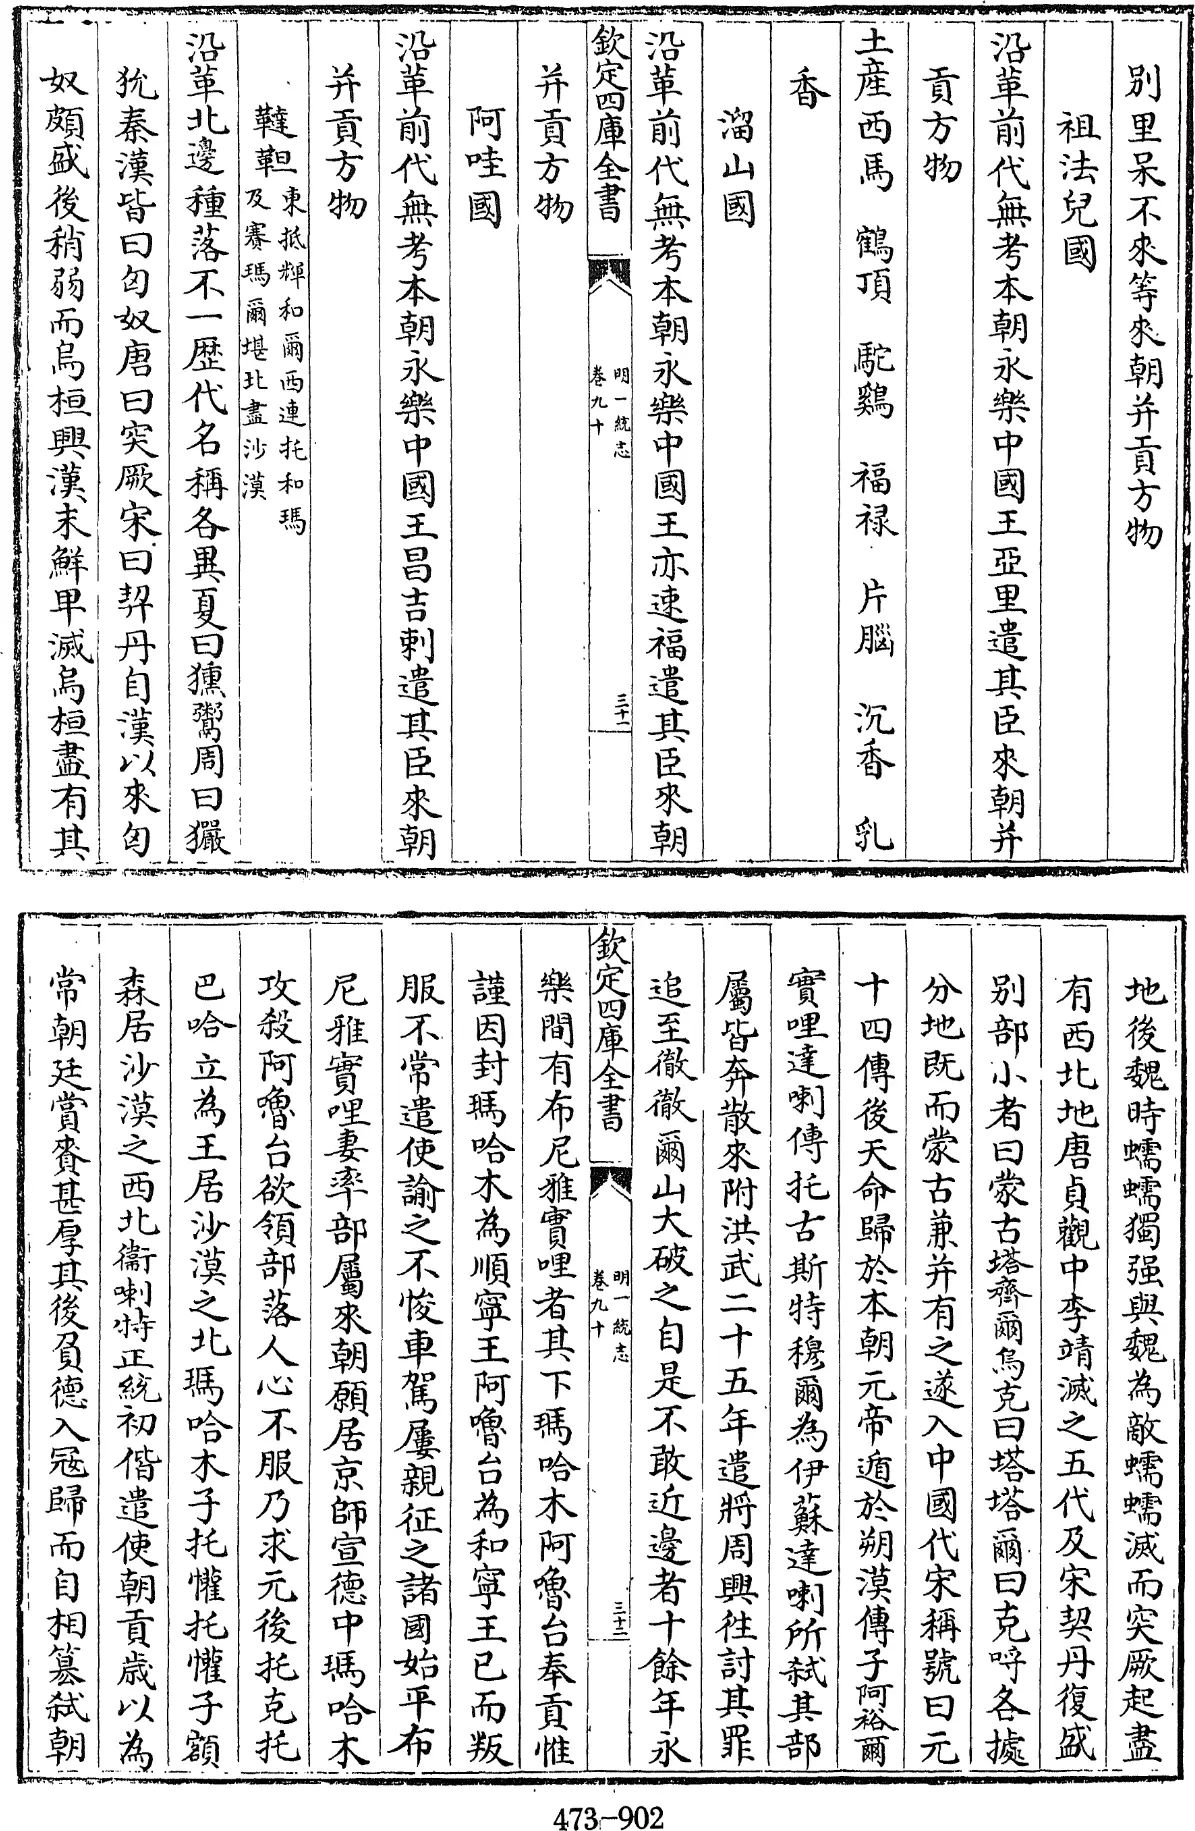 别里呆不來等來朝并貢方物
祖法兒國
沿革前代無考本朝永樂中國王亞里遣其臣來朝并
貢方物
土産西馬 鶴頂 駝鷄 福禄 片腦 沉香 乳
香
溜山國
沿革前代無考本朝永樂中國王亦速福遣其臣來朝
欽定四庫全書
明一統志
卷九十
三十一
并貢方物
阿哇國
沿革前代無考本朝永樂中國王昌吉剌遣其臣來朝
并貢方物
韃靼東抵輝和爾西連托和瑪
及賽瑪爾堪北盡沙漠
沿革北邊種落不一歴代名稱各異夏曰獯鬻周曰玁
狁秦漢皆曰匈奴唐曰突厥宋曰契丹自漢以來匈
奴頗盛後稍弱而烏桓興漢末鮮卑滅烏桓盡有其
地後魏時蠕蠕獨强與魏為敵蠕蠕滅而突厥起盡
有西北地唐貞觀中李靖滅之五代及宋契丹復盛
别部小者曰蒙古塔齊爾烏克曰塔塔爾曰克呼各據
分地既而蒙古兼并有之遂入中國代宋稱號曰元
十四傳後天命歸於本朝元帝遁於朔漠傳子阿裕爾
實哩達喇傳托古斯特穆爾為伊蘇達喇所弑其部
屬皆奔散來附洪武二十五年遣將周興徃討其罪
追至徹徹爾山大破之自是不敢近邊者十餘年永
欽定四庫全書
明一統志
卷九十
三十二
樂間有布尼雅實哩者其下瑪哈木阿嚕台奉貢惟
謹因封瑪哈木為順寧王阿嚕台為和寧王已而叛
服不常遣使諭之不悛車駕屢親征之諸國始平布
尼雅實哩妻率部屬來朝願居京師宣德中瑪哈木
攻殺阿嚕台欲領部落人心不服乃求元後托克托
巴哈立為王居沙漠之北瑪哈木子托懽托懽子額
森居沙漠之西北衞喇特正統初偕遣使朝貢歳以為
常朝廷賞賚甚厚其後負德入冦歸而自相簒弑朝
473-902